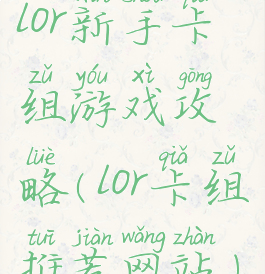 lor新手卡
zǔ yóu xì gōng
组游戏攻
lüè qiǎ zǔ
略(lor卡组
tuī jiàn wǎng zhàn
推荐网站)